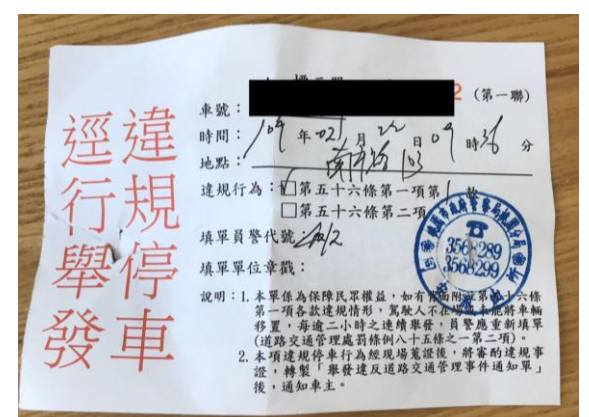 違規停車
逕行舉發
(第一聯)
車號：
時間：109年02月22日09時36分
地點：南平路103
違規行為：☑第五十六條第一項第1款
□第五十六條第二項
填單員警代號：
填單單位章戳：
桃園市政府警察局桃園分局
3568289
3568299
說明：1.本單係為保障民眾權益，如有背面附註第五十六條
第一項各款違規情形，駕駛人不在場或未能將車輛
移置，每逾二小時之連續舉發，員警應重新填單
(道路交通管理處罰條例八十五條之一第二項)。
2.本項違規停車行為經現場蒐證後，將審酌違規事
證，轉製「舉發違反道路交通管理事件通知單」
後，通知車主。